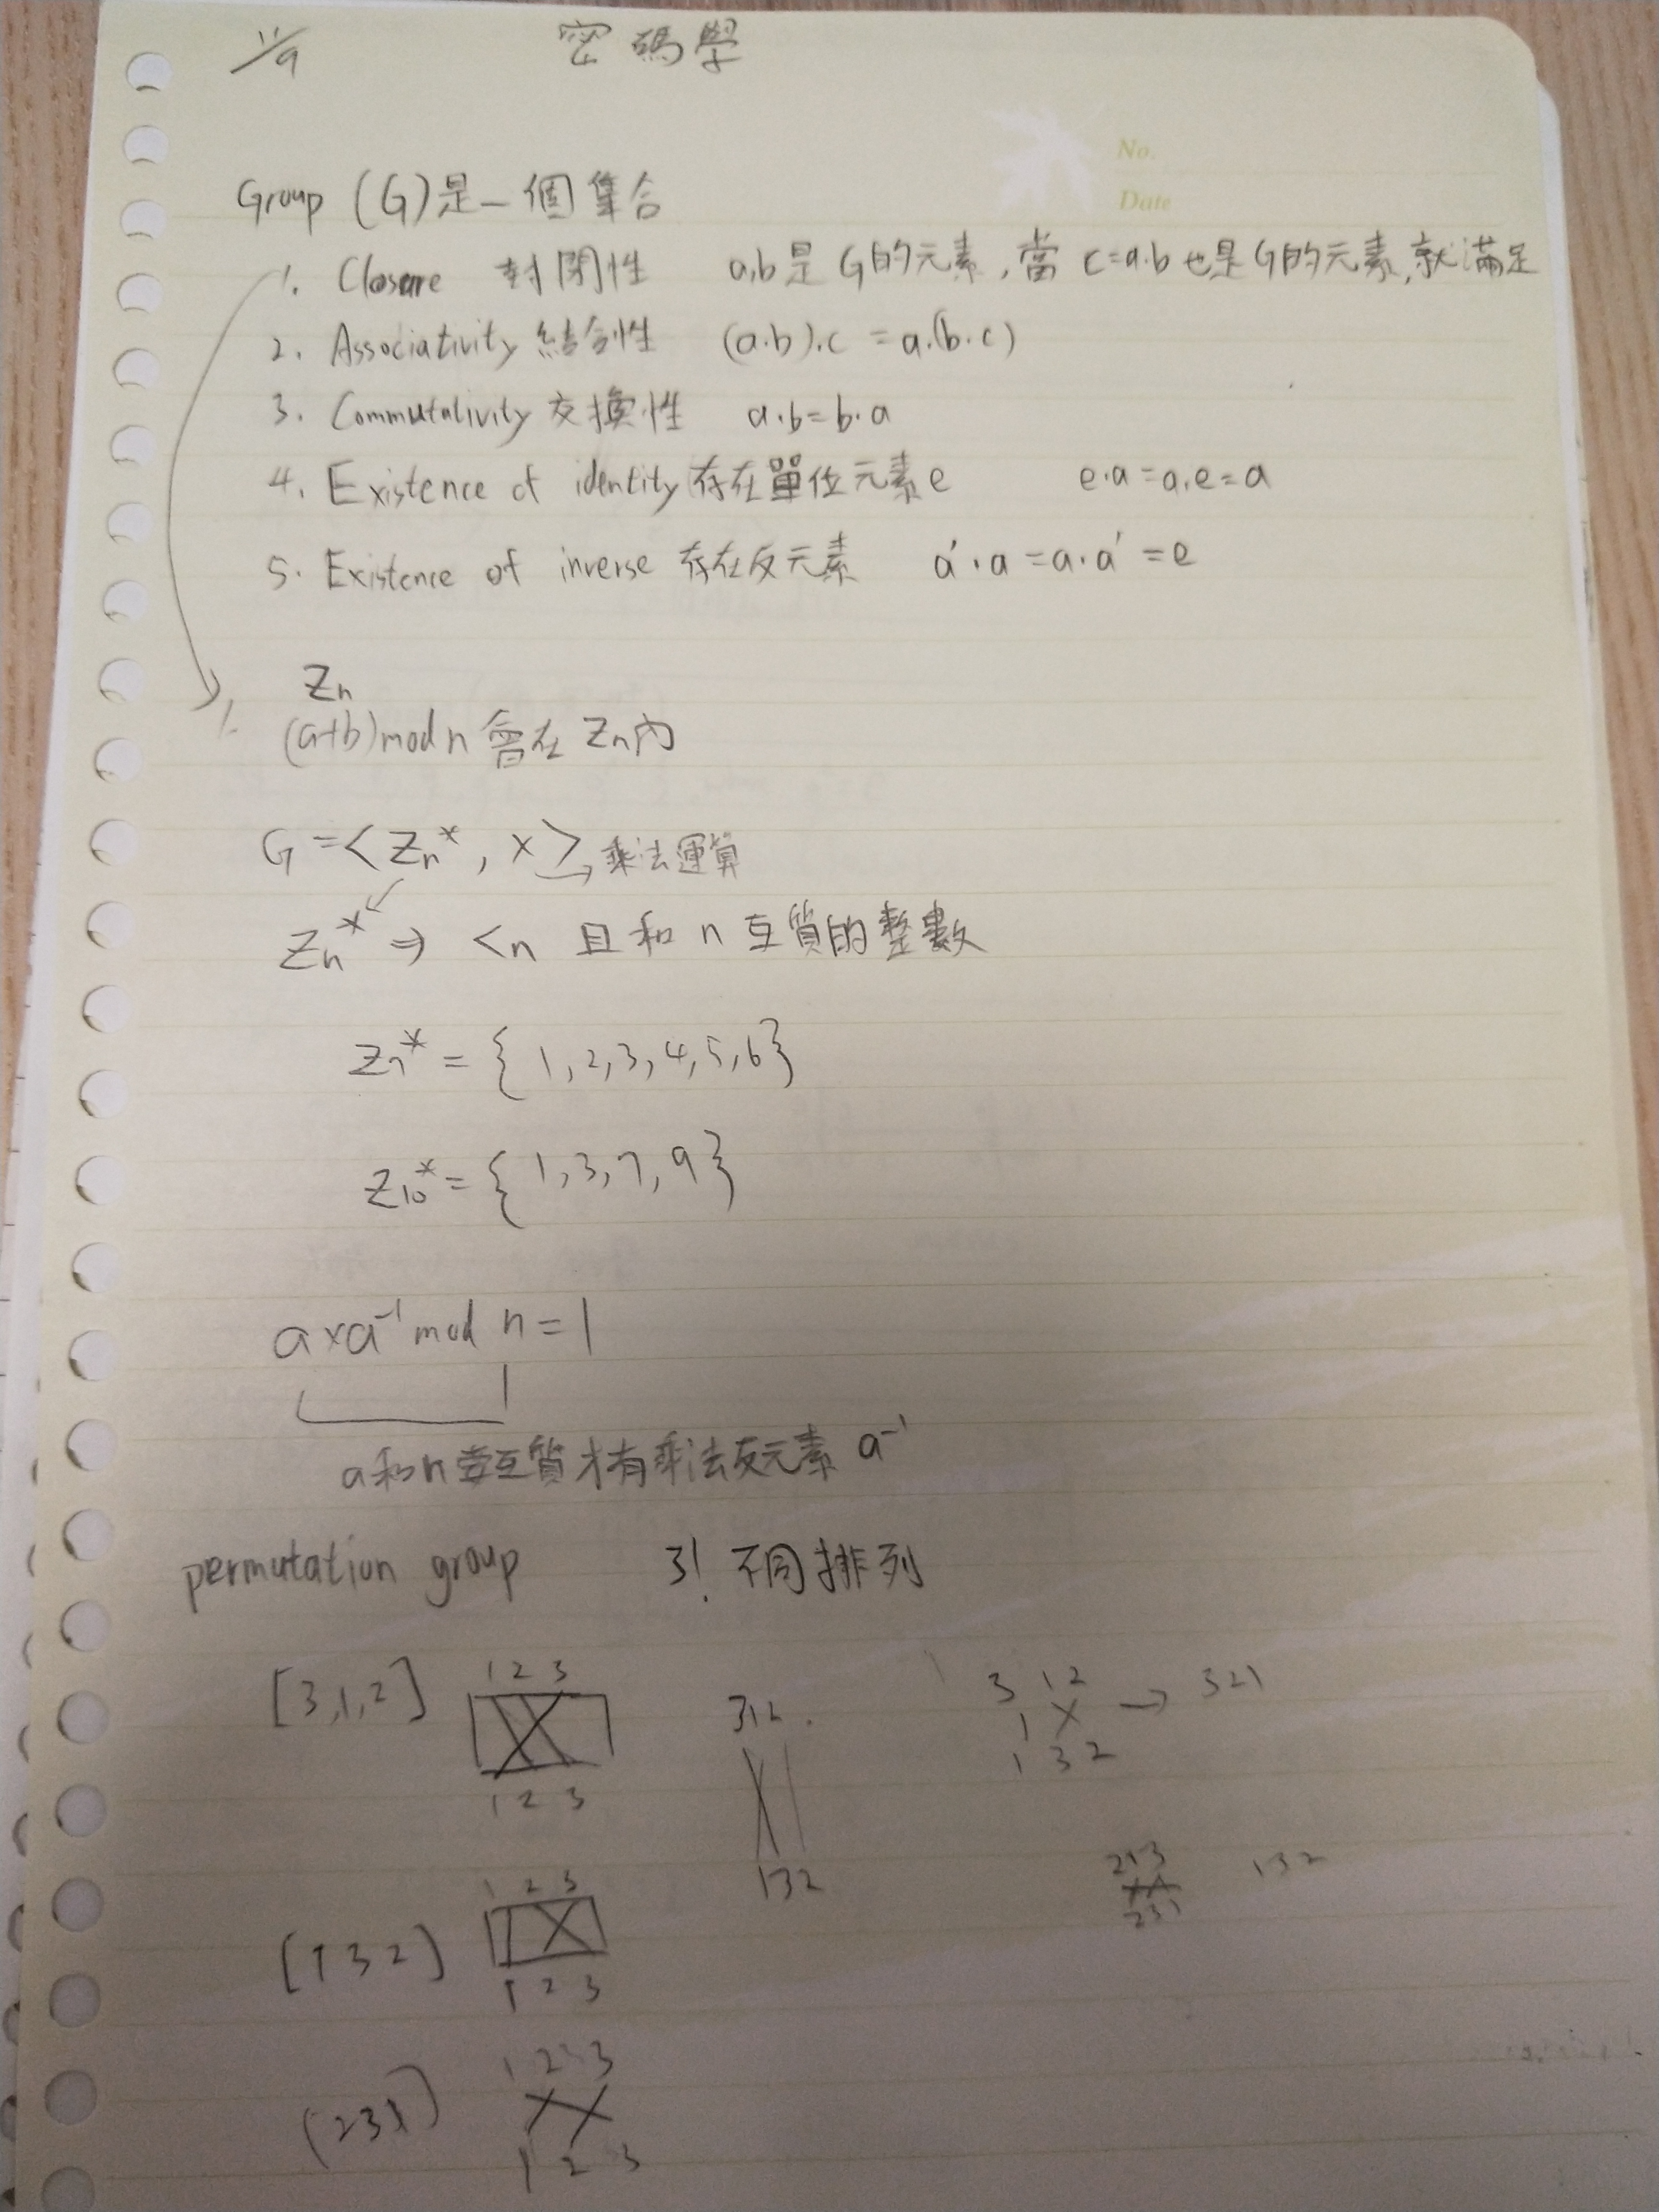 11/9 密碼學
No.
Date
Group (G)是一個集合
1. Closure 封閉性 a,b是G的元素,當 c=a·b也是G的元素,就滿足
2. Associativity 結合性 (a·b)·c = a·(b·c)
3. Commutativity 交換性 a·b=b·a
4. Existence of identity 存在單位元素e e·a=a·e=a
5. Existence of inverse 存在反元素 a'·a=a·a'=e
Zn
1. (a+b)mod n 會在 Zn內
G=<Zn*, ×> → 乘法運算
Zn* ⇒ <n 且和 n 互質的整數
Z7* = {1,2,3,4,5,6}
Z10* = {1,3,7,9}
a×a⁻¹ mod n = 1
a和n要互質才有乘法反元素 a⁻¹
permutation group 3! 不同排列
1 2 3
[3,1,2] 312 3 1 2 → 321
1 3 2
1 2 3
132
213 132
231
1 2 3
[1 3 2]
1 2 3
1 2 3
(231)
1 2 3